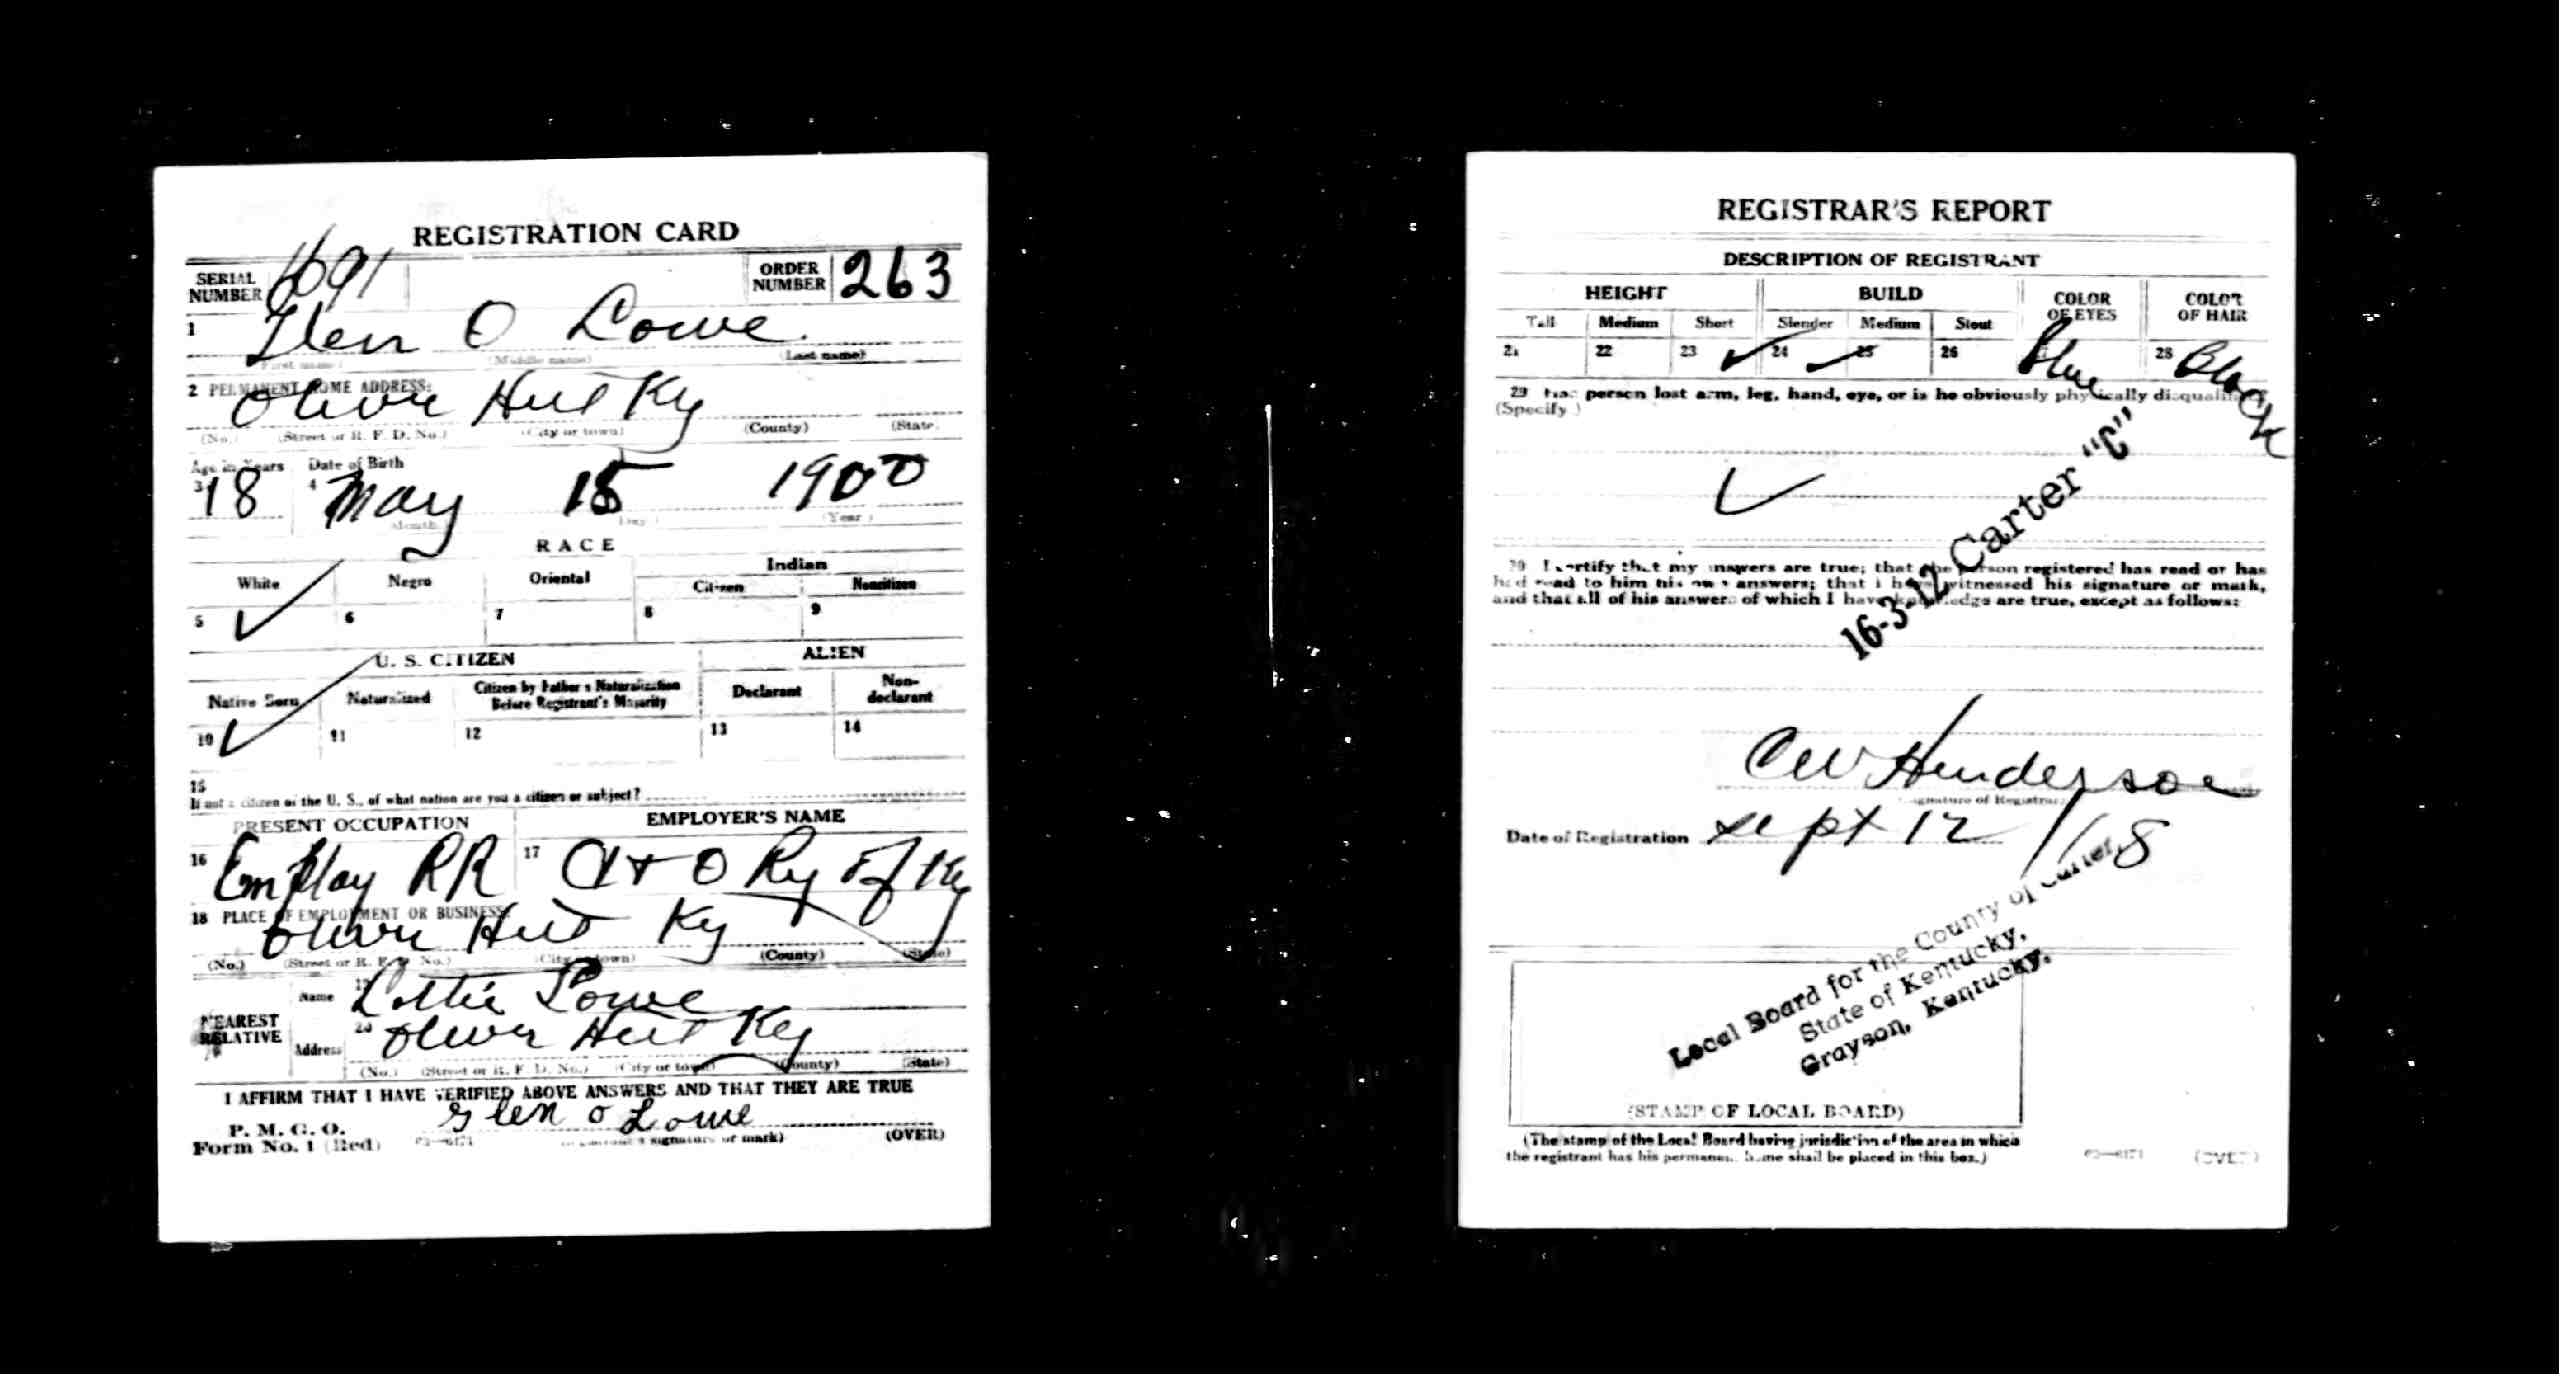 REGISTRATION CARD
SERIAL NUMBER 1691 ORDER NUMBER 263
1 Glen O Lowe
(First name) (Middle name) (Last name)
2 PERMANENT HOME ADDRESS:
Olive Hill Ky
(No.) (Street or R. F. D. No.) (City or town) (County) (State)
Age in Years Date of Birth
3 18 4 May 15 1900
(Month) (Day) (Year)
RACE
White Negro Oriental Indian
Citizen Noncitizen
5 ✓ 6 7 8 9
U. S. CITIZEN ALIEN
Native Born Naturalized Citizen by Father's Naturalization Before Registrant's Majority Declarant Non-declarant
10 ✓ 11 12 13 14
15
If not a citizen of the U. S., of what nation are you a citizen or subject?
PRESENT OCCUPATION EMPLOYER'S NAME
16 Employ RR 17 C + O Ry of Ky
18 PLACE OF EMPLOYMENT OR BUSINESS:
Olive Hill Ky
(No.) (Street or R. F. D. No.) (City or town) (County) (State)
NEAREST RELATIVE
Name 19 Lottie Lowe
Address 20 Olive Hill Ky
(No.) (Street or R. F. D. No.) (City or town) (County) (State)
I AFFIRM THAT I HAVE VERIFIED ABOVE ANSWERS AND THAT THEY ARE TRUE
P. M. G. O.
Form No. 1 (Red) Glen O Lowe
03—6171 (Registrant's signature or mark) (OVER)
REGISTRAR'S REPORT
DESCRIPTION OF REGISTRANT
HEIGHT BUILD COLOR OF EYES COLOR OF HAIR
Tall Medium Short Slender Medium Stout
21 22 23 ✓ 24 ✓ 25 26 27 Blue 28 Black
29 Has person lost arm, leg, hand, eye, or is he obviously physically disqualified?
(Specify.)
✓
16-3-12 Carter "C"
30 I certify that my answers are true; that the person registered has read or has
had read to him his own answers; that I have witnessed his signature or mark,
and that all of his answers of which I have knowledge are true, except as follows:
C W Henderson
(Signature of Registrar)
Date of Registration Sept 12 / 18
Local Board for the County of Carter,
State of Kentucky,
Grayson, Kentucky.
(STAMP OF LOCAL BOARD)
(The stamp of the Local Board having jurisdiction of the area in which
the registrant has his permanent home shall be placed in this box.)
03—6171 (OVER)